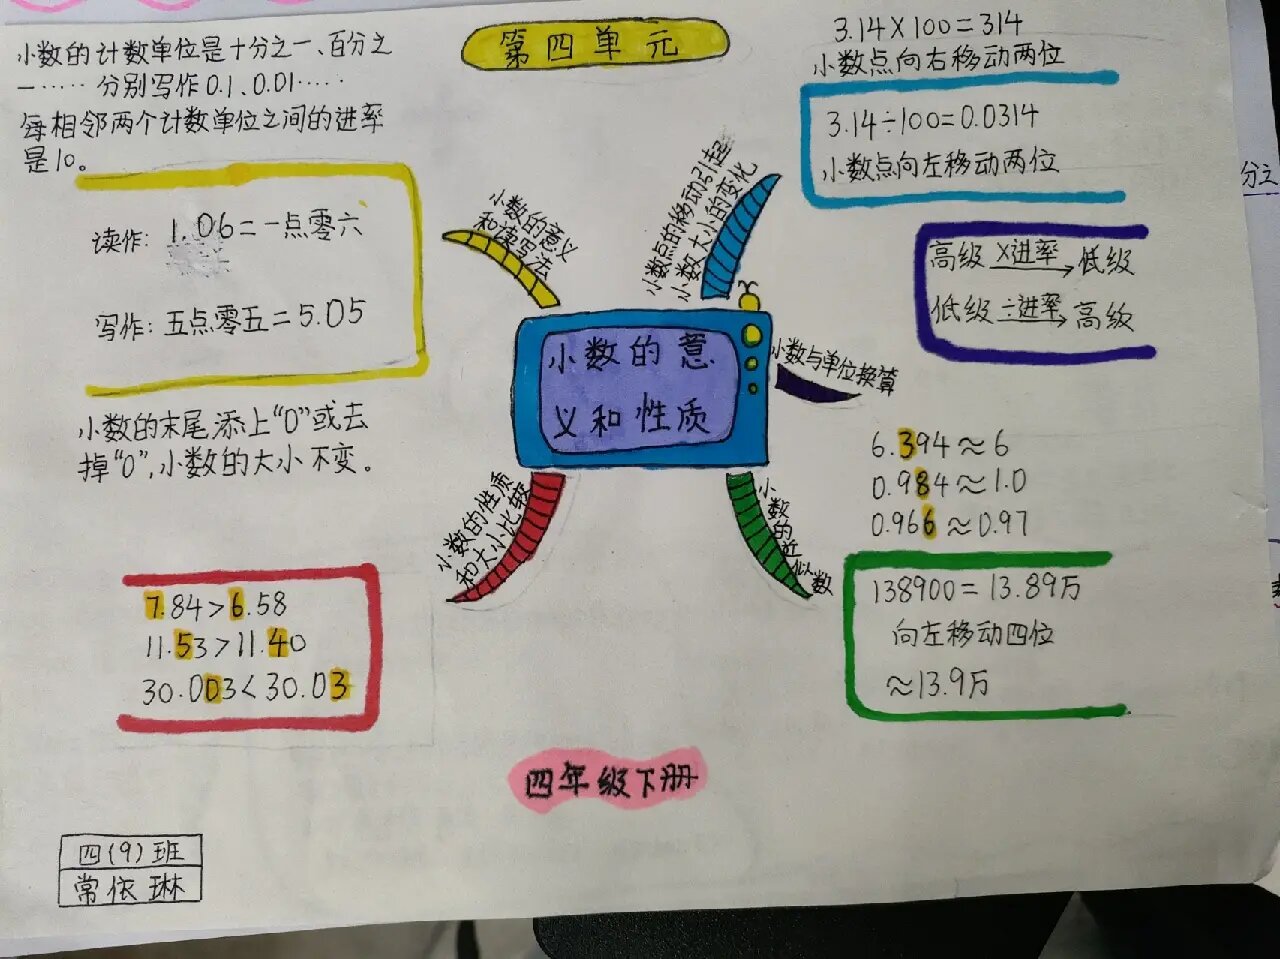 第四单元
小数的计数单位是十分之一、百分之
一……分别写作0.1、0.01……
每相邻两个计数单位之间的进率
是10。
读作：1.06=一点零六
写作：五点零五=5.05
小数的意义
和读写法
小数的末尾添上“0”或去
掉“0”，小数的大小不变。
7.84>6.58
11.53>11.40
30.003<30.03
小数的性质
和大小比较
小数的意
义和性质
小数点的移动引起
小数大小的变化
3.14×100=314
小数点向右移动两位
3.14÷100=0.0314
小数点向左移动两位
高级 ×进率→ 低级
低级 ÷进率→ 高级
小数与单位换算
6.394≈6
0.984≈1.0
0.966≈0.97
138900=13.89万
向左移动四位
≈13.9万
小数的近似数
四年级下册
四(9)班
常依琳
分之